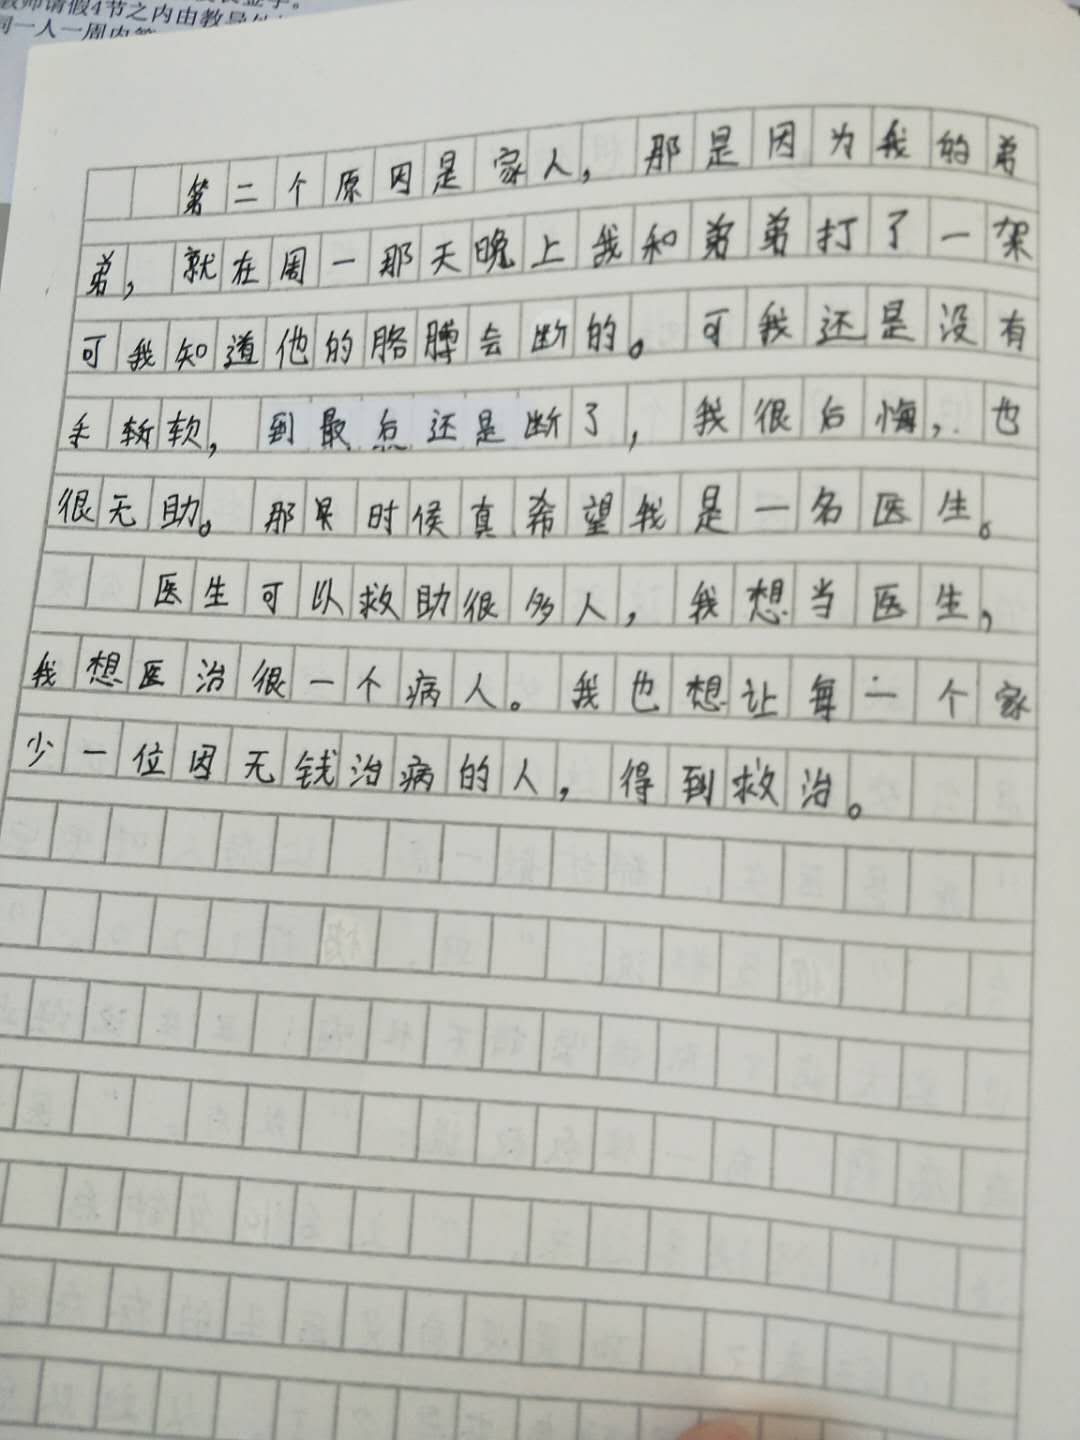 教师请假4节之内由教导
同一人一周内
第二个原因是家人，那是因为我的弟
弟，就在周一那天晚上我和弟弟打了一架
可我知道他的胳膊会断的。可我还是没有
手斩软，到最后还是断了，我很后悔，也
很无助。那是时候真希望我是一名医生。
医生可以救助很多人，我想当医生，
我想医治很一个病人。我也想让每一个家
少一位因无钱治病的人，得到救治。